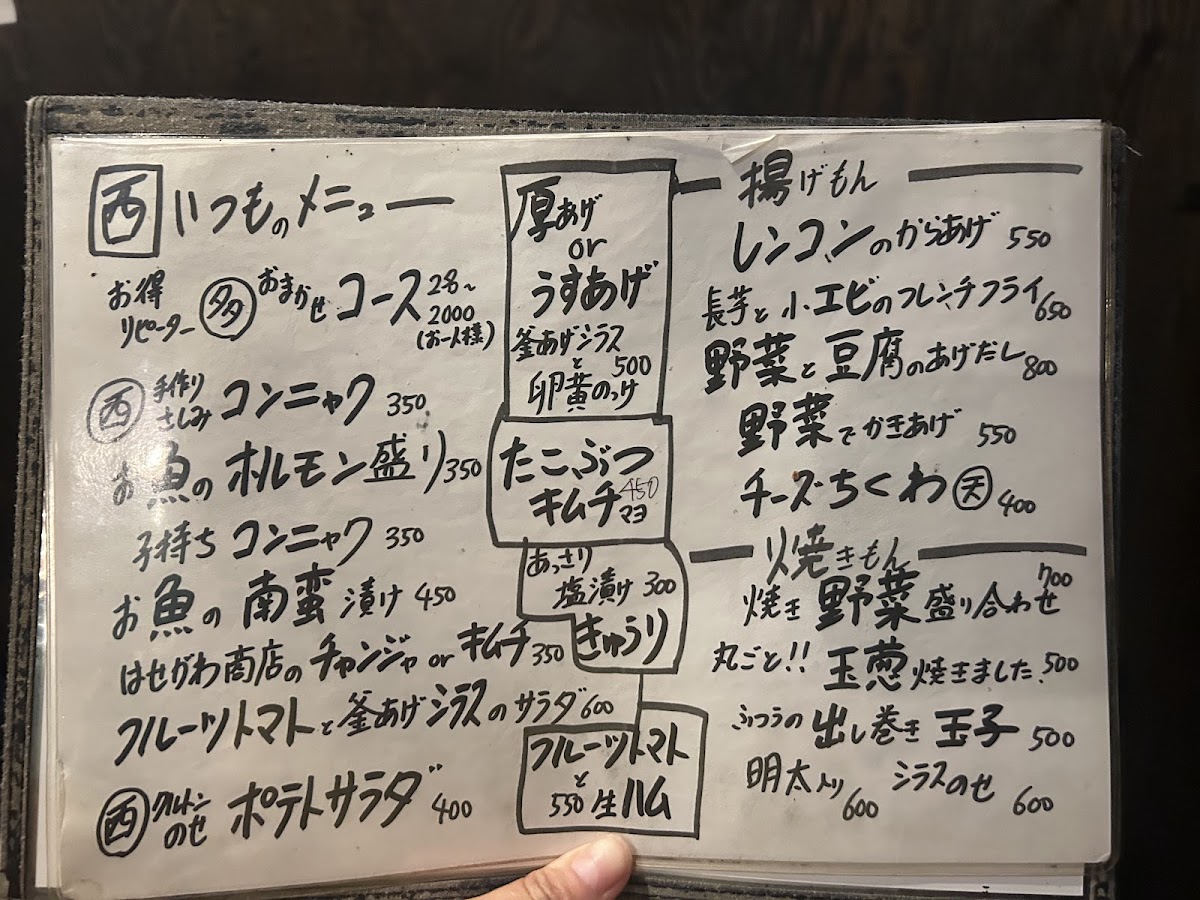 西 いつものメニュー
お得
リピーター 多 おまかせ コース 28~
2000
(お一人様)
西 手作り
さしみ コンニャク 350
お魚のホルモン盛り 350
子持ちコンニャク 350
お魚の南蛮漬け 450
はせがわ商店のチャンジャorキムチ 350
フルーツトマトと釜あげシラスのサラダ 600
西 クルトン
のせ ポテトサラダ 400
厚あげ
or
うすあげ
釜あげシラス
と 500
卵黄のっけ
たこぶつ
キムチマヨ 450
あっさり
塩漬け 300
きゅうり
フルーツトマト
と
550 生ハム
揚げもん
レンコンのからあげ 550
長芋と小エビのフレンチフライ 650
野菜と豆腐のあげだし 800
野菜でかきあげ 550
チーズちくわ天 400
焼きもん
焼き野菜盛り合わせ 700
丸ごと!!玉葱焼きました、500
ふつうの出し巻き玉子 500
明太入り 600 シラスのせ 600